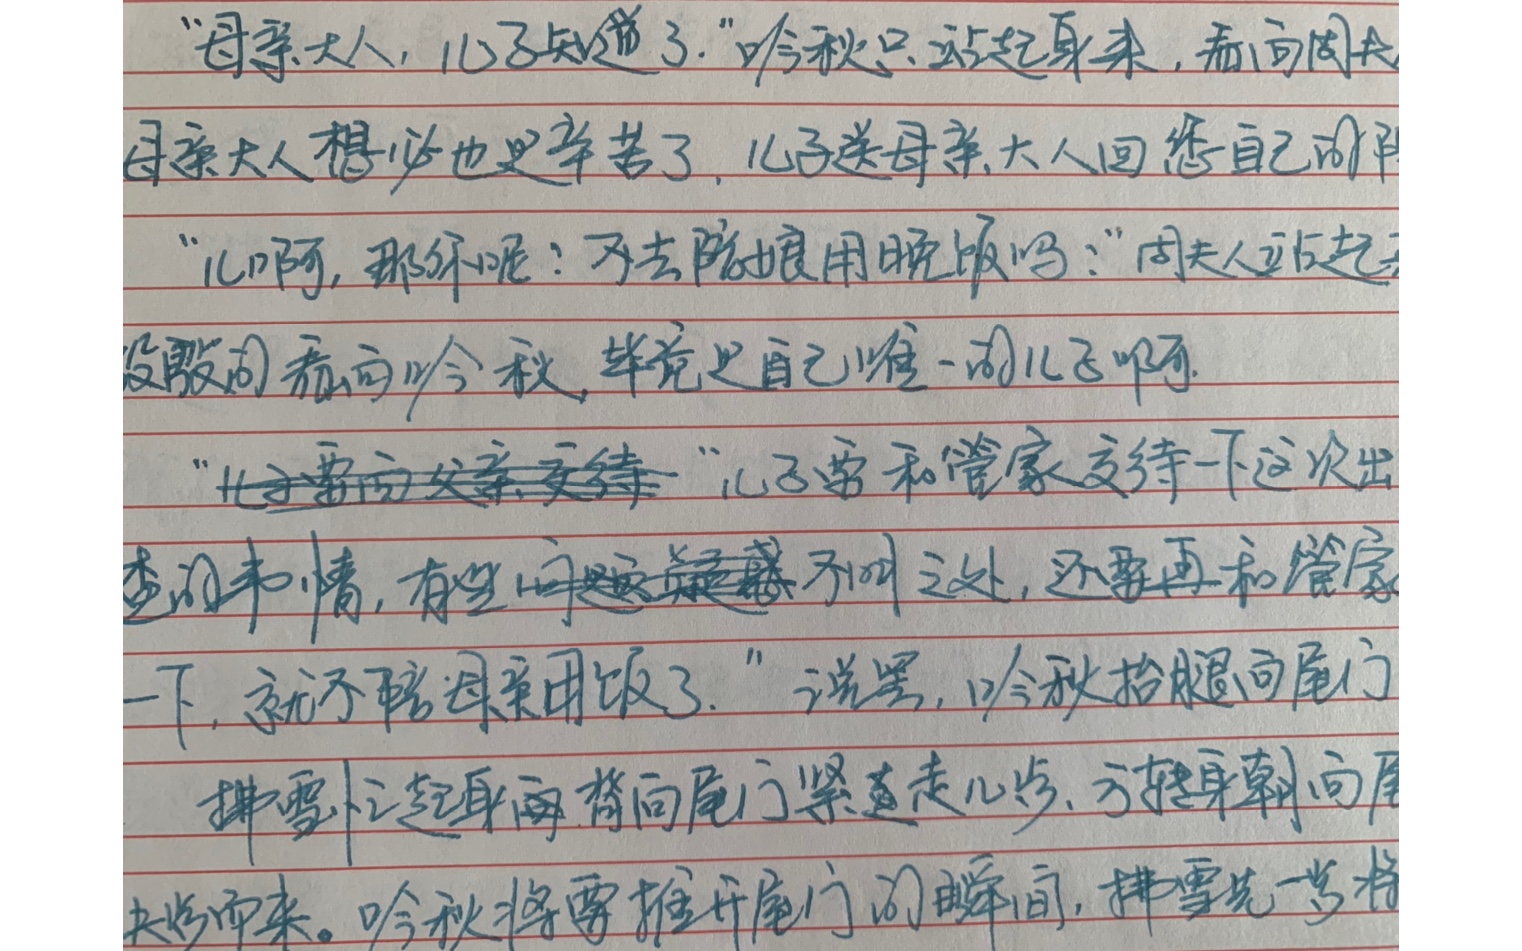 “母亲大人，儿子知道了.”吟秋只站起身来，看向周夫
母亲大人想必也是辛苦了，儿子送母亲大人回您自己的
“儿啊，那你呢？不去陪娘用晚饭吗？”周夫人站起
没骰的看向吟秋，毕竟是自己唯一的儿子啊.
“儿子要向父亲交待 “儿子要和管家交待一下这次出
查的事情，有些问题疑惑不明之处，还要再和管家
一下，就不陪母亲用饭了.”说罢，吟秋抬腿向屋门
拂雪忙起身两背向屋门紧走几步、方转身朝向屋
而来。吟秋将要推开屋门的瞬间，拂雪先一步将